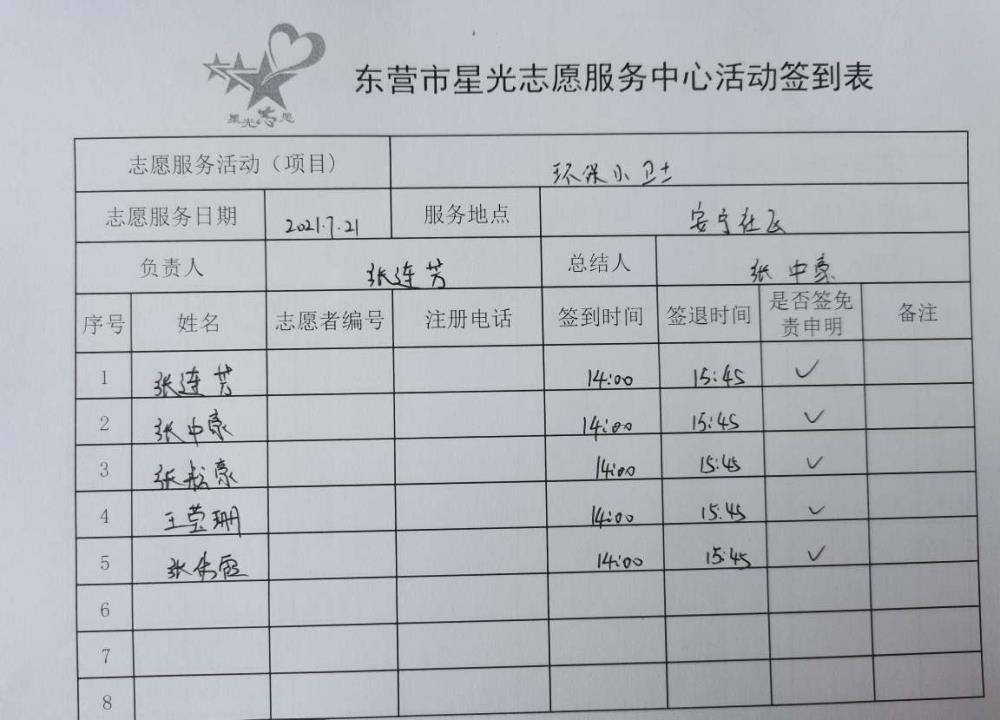 星光志愿
东营市星光志愿服务中心活动签到表
志愿服务活动（项目） 环保小卫士
志愿服务日期 2021.7.21 服务地点 安宁社区
负责人 张连芳 总结人 张中豪
序号 姓名 志愿者编号 注册电话 签到时间 签退时间 是否签免责申明 备注
1 张连芳 14:00 15:45 ✓
2 张中豪 14:00 15:45 ✓
3 张松豪 14:00 15:45 ✓
4 王莹珊 14:00 15:45 ✓
5 张 霞 14:00 15:45 ✓
6
7
8